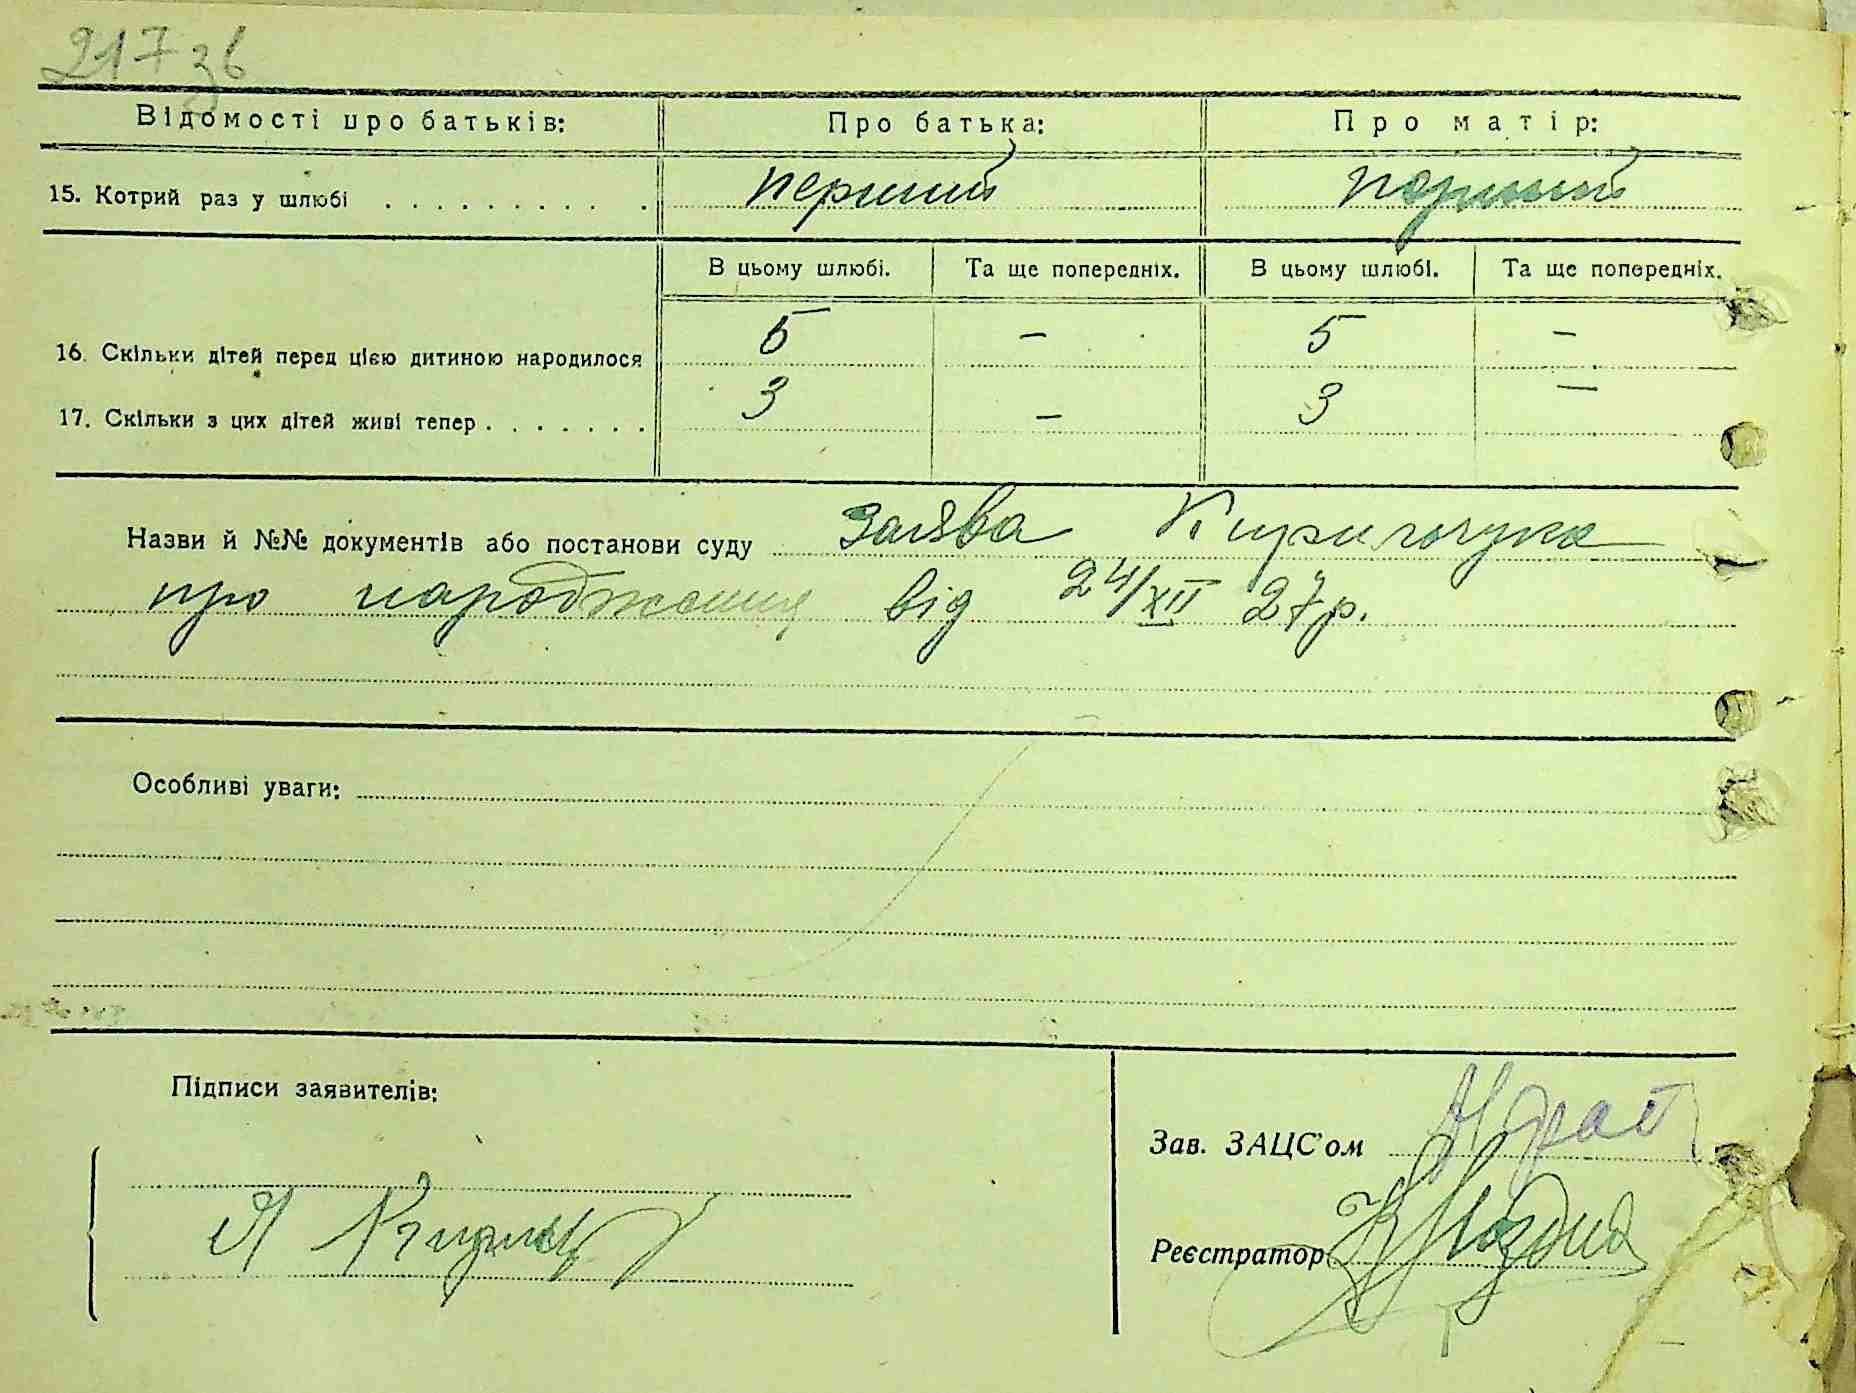 217 зв
Відомості про батьків: Про батька: Про матір:
15. Котрий раз у шлюбі . . . . . . . . . . перший перший
В цьому шлюбі. Та ще попередніх. В цьому шлюбі. Та ще попередніх.
16. Скільки дітей перед цією дитиною народилося 5 – 5 –
17. Скільки з цих дітей живі тепер . . . . . . . 3 – 3 –
Назви й №№ документів або постанови суду заява Кирильчука
про народження від 24/XII 27 р.
Особливі уваги:
Підписи заявителів:
Зав. ЗАЦС'ом
Реєстратор